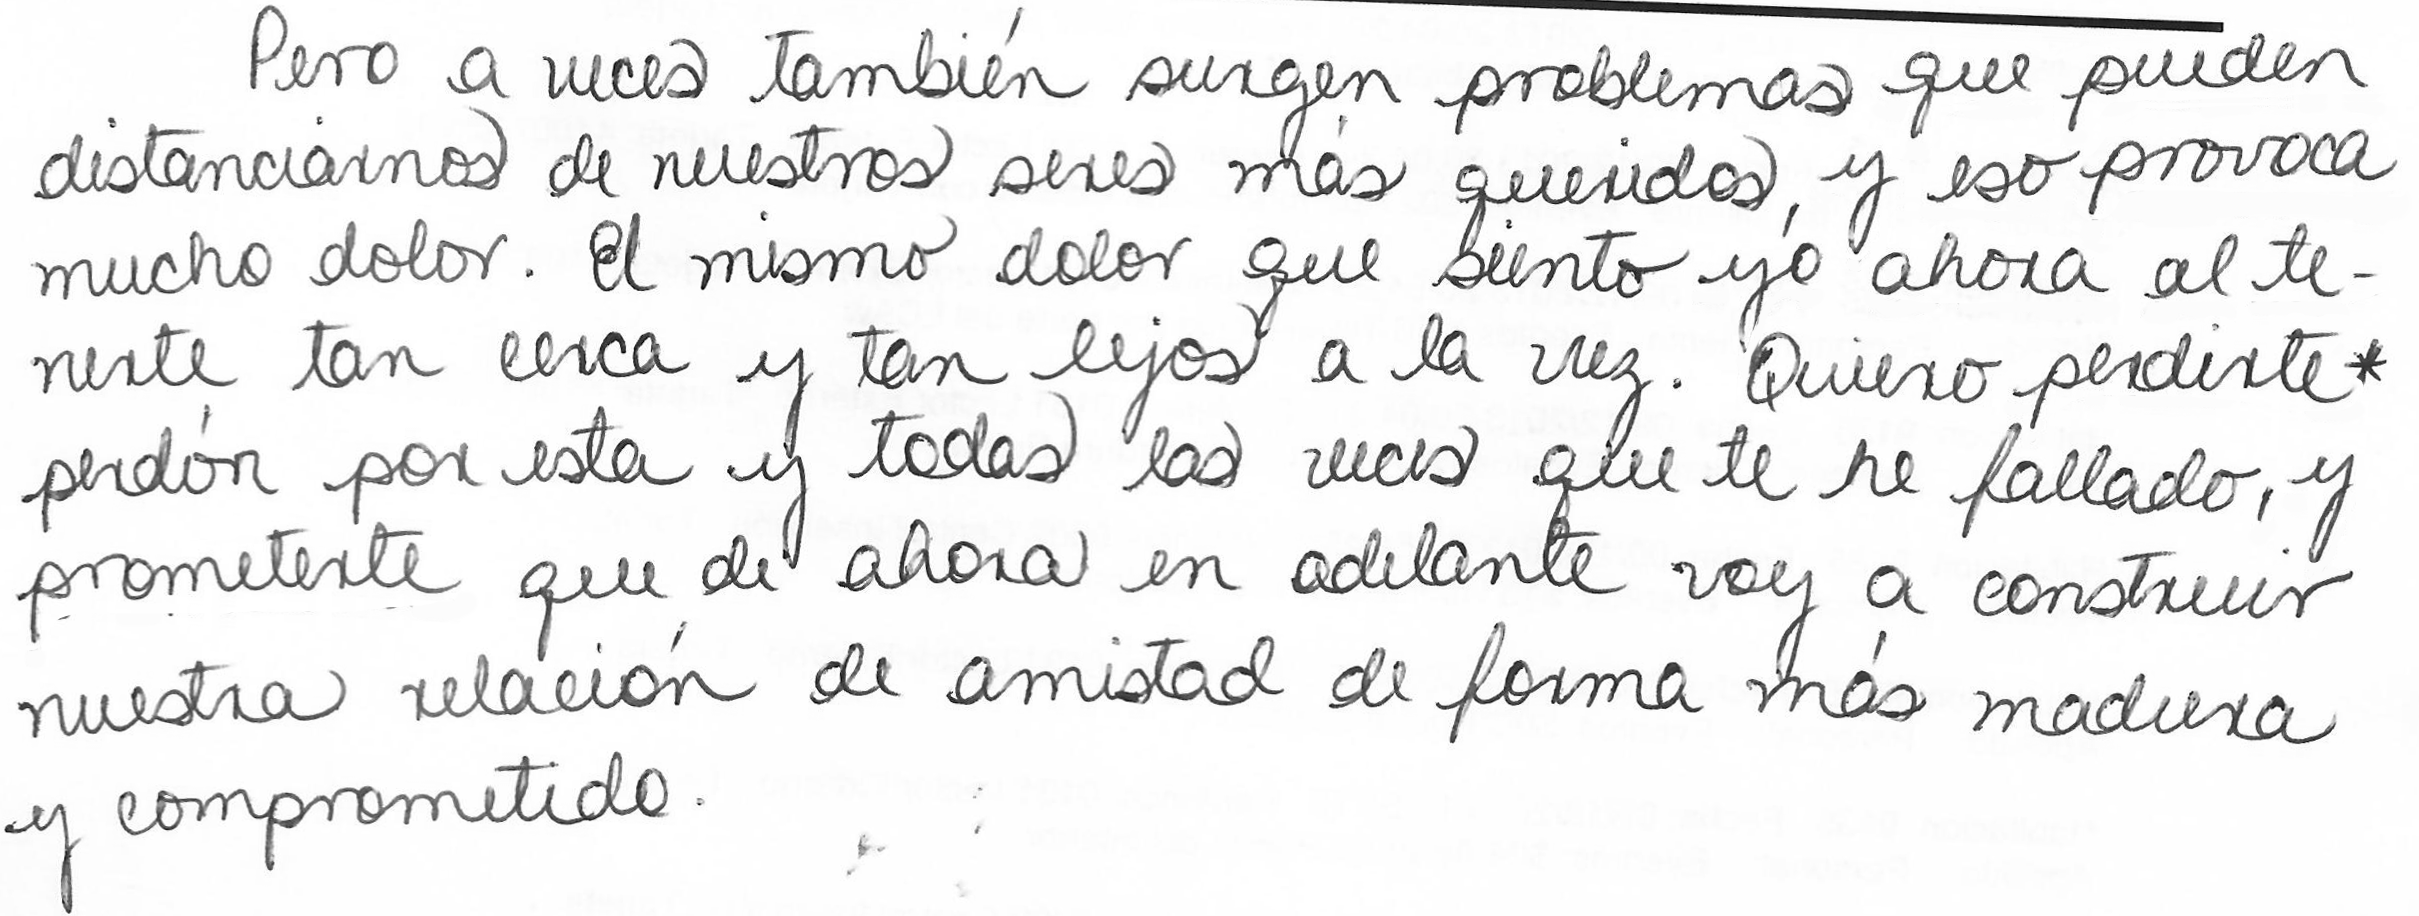 Pero a veces también surgen problemas que pueden
distanciarnos de nuestros seres más queridos, y eso provoca
mucho dolor. El mismo dolor que siento yo ahora al te-
nerte tan cerca y tan lejos a la vez. Quiero perdirte*
perdón por esta y todas las veces que te he fallado, y
prometerte que de ahora en adelante voy a construir
nuestra relación de amistad de forma más madura
y comprometida.